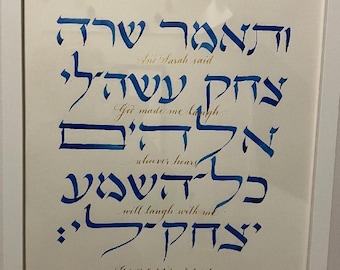 ותאמר שרה
And Sarah said
צחק עשה לי
God made me laugh
אלהים
whoever hears
כל־השמע
will laugh with me
יצחק־לי׃